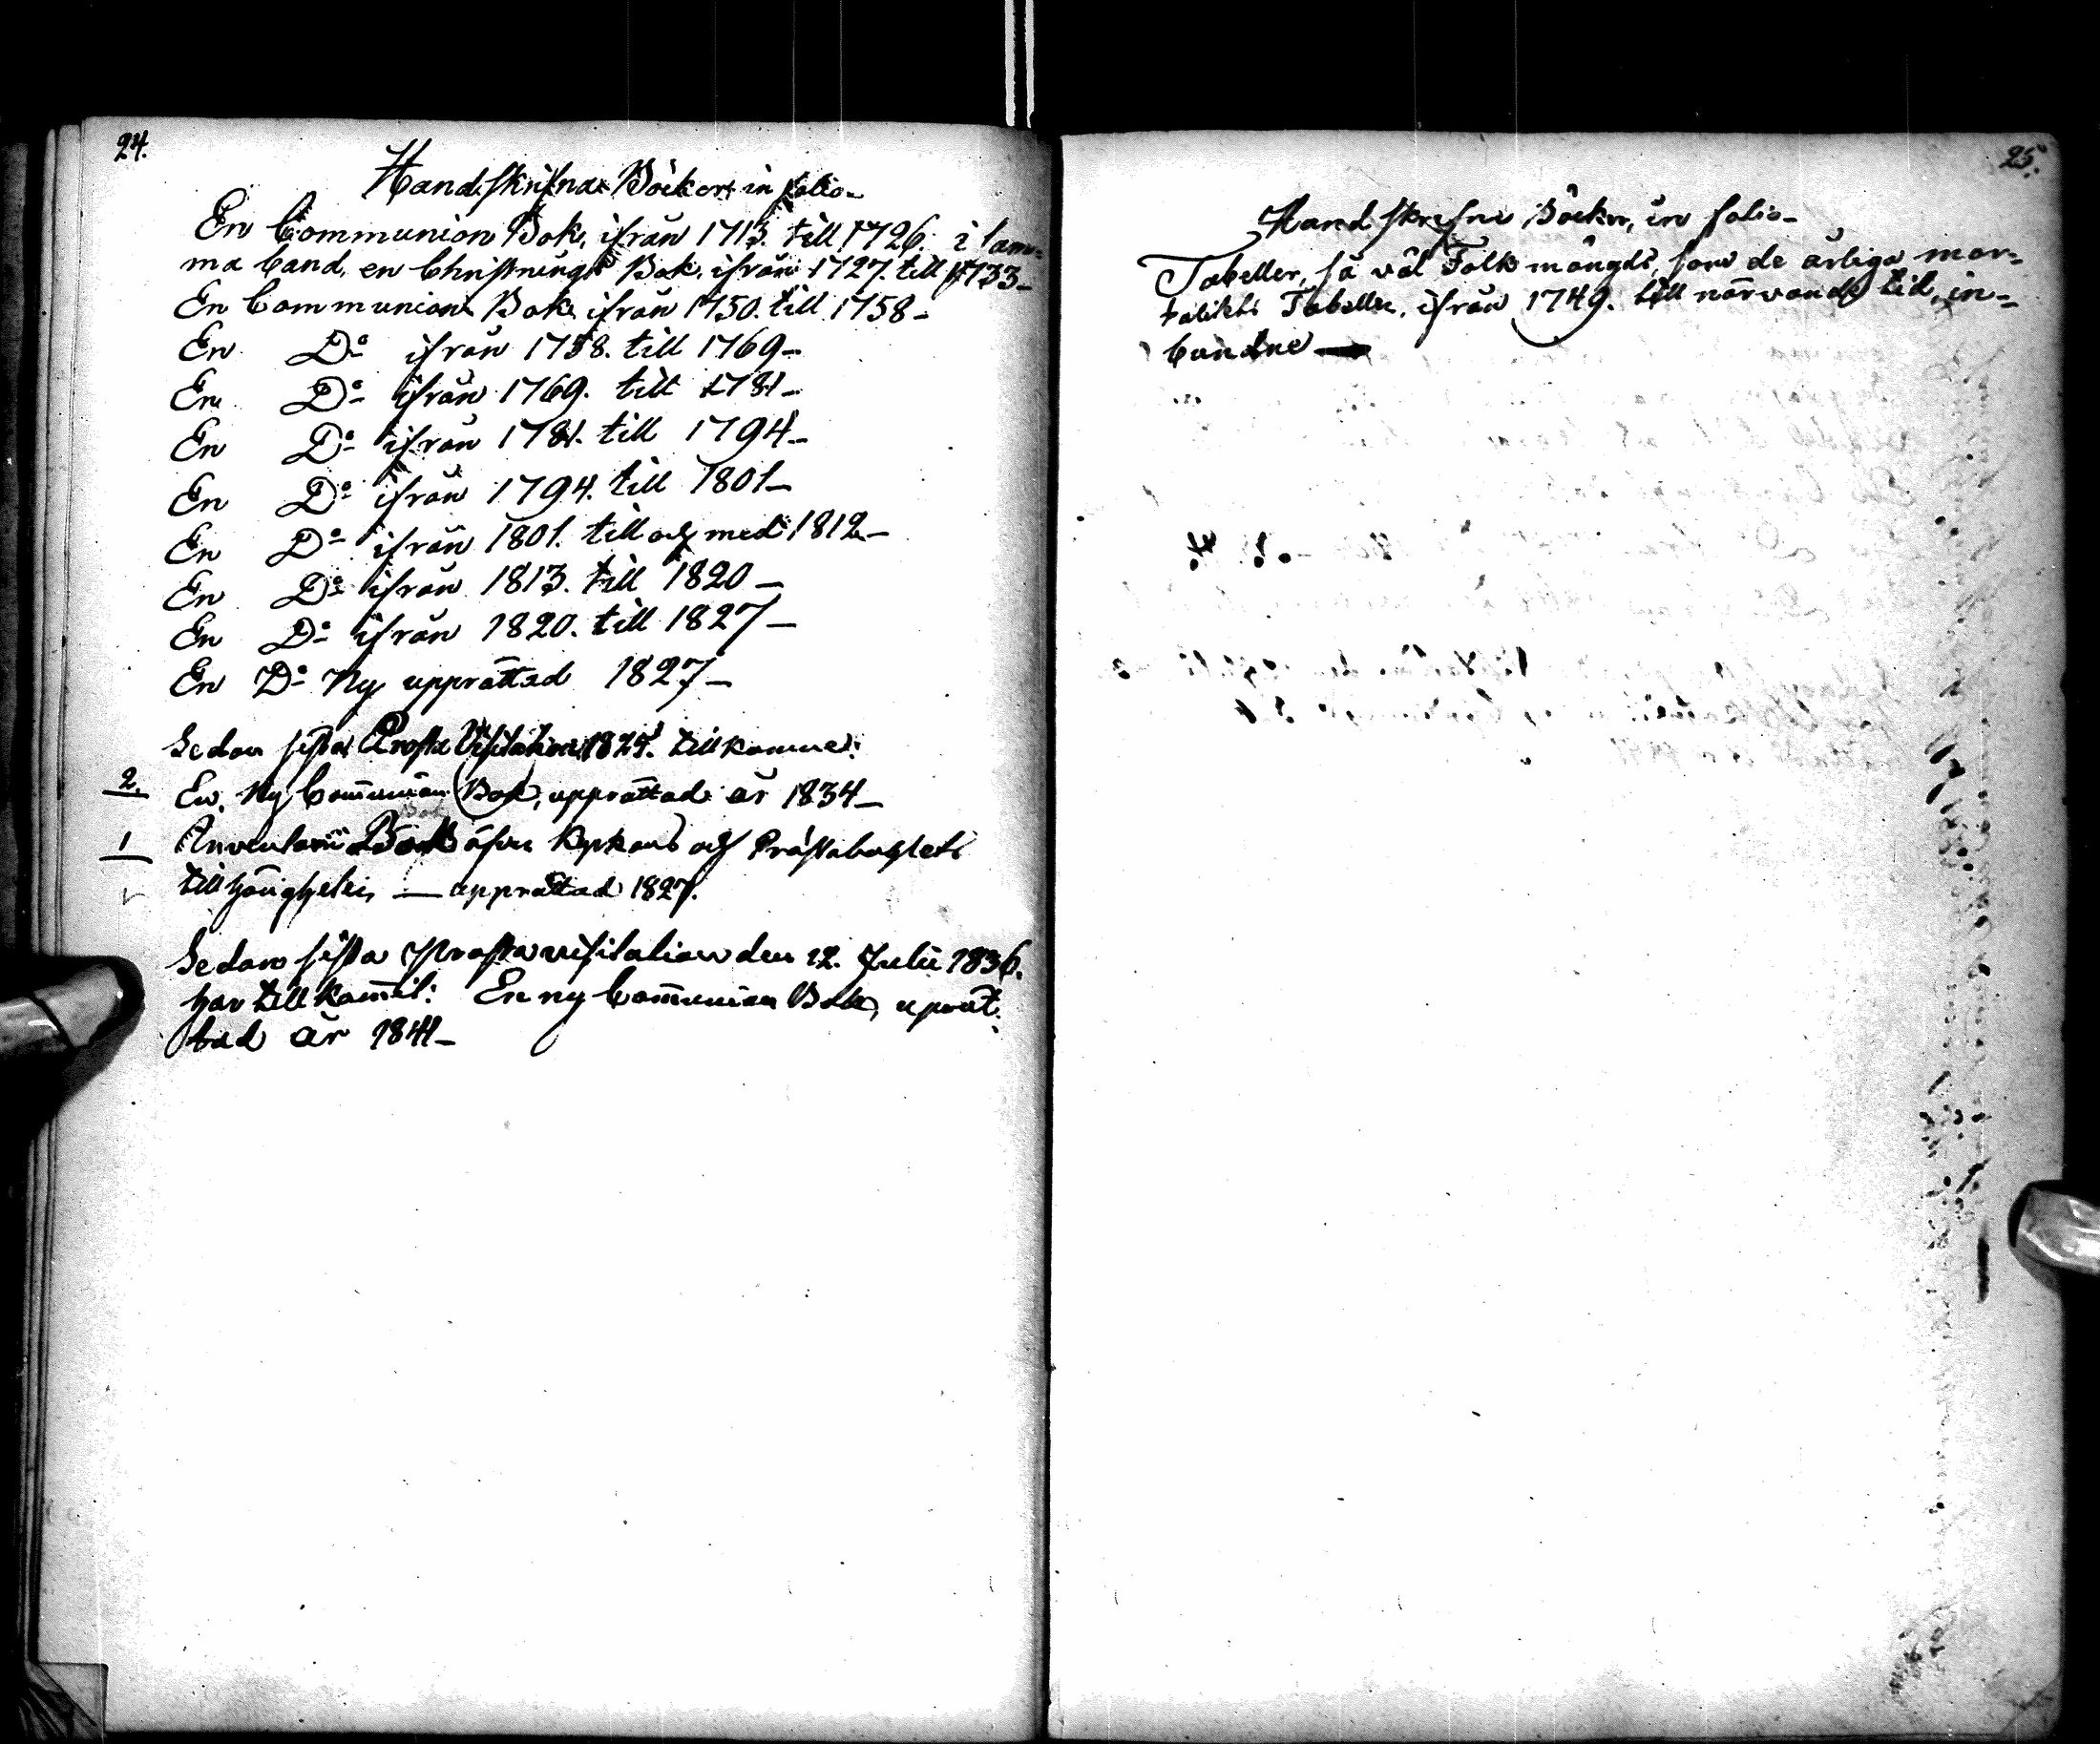 24.
Handskrifna Böcker in folio-
En Communion Bok, ifrån 1713. till 1726. i sam-
ma band, en Christnings Bok, ifrån 1727. till 1733-
En Communion Bok ifrån 1750. till 1758-
En Do ifrån 1758. till 1769-
En Do ifrån 1769. till 1781-
En Do ifrån 1781. till 1794-
En Do ifrån 1794. till 1801-
En Do ifrån 1801. till och med 1812-
En Do ifrån 1813. till 1820-
En Do ifrån 1820. till 1827-
En Do Ny upprättad 1827-
Sedan sista Prosta Visitation tillkomne:
2. En Ny Com̄union Bok, upprättad år 1834-
1 Inventarii Bok öfver Kyrkans och Prästabohlets
tillhörigheter — upprättad 1827.
Sedan sista Prosta visitation den 12. Julii 1836.
har tillkom̄it: En ny Com̄union Bok, uprät-
tad år 1841-
25.
Handskrefne Böcker, in folio-
Tabeller, så väl Folkmängds, som de årliga mor-
talitets Tabeller, ifrån 1749. till närvande tid, in-
bundne —